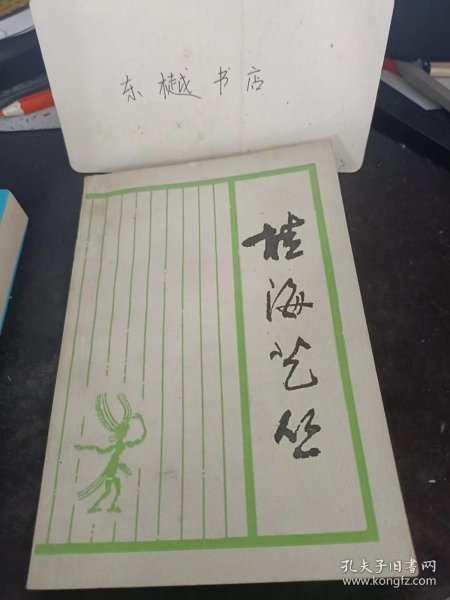 东樾书店
桂海艺丛
孔夫子旧书网
www.kongfz.com